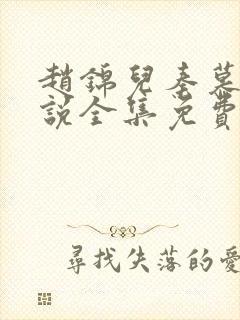 趙錦兒秦慕
說全集免費
尋找失落的愛